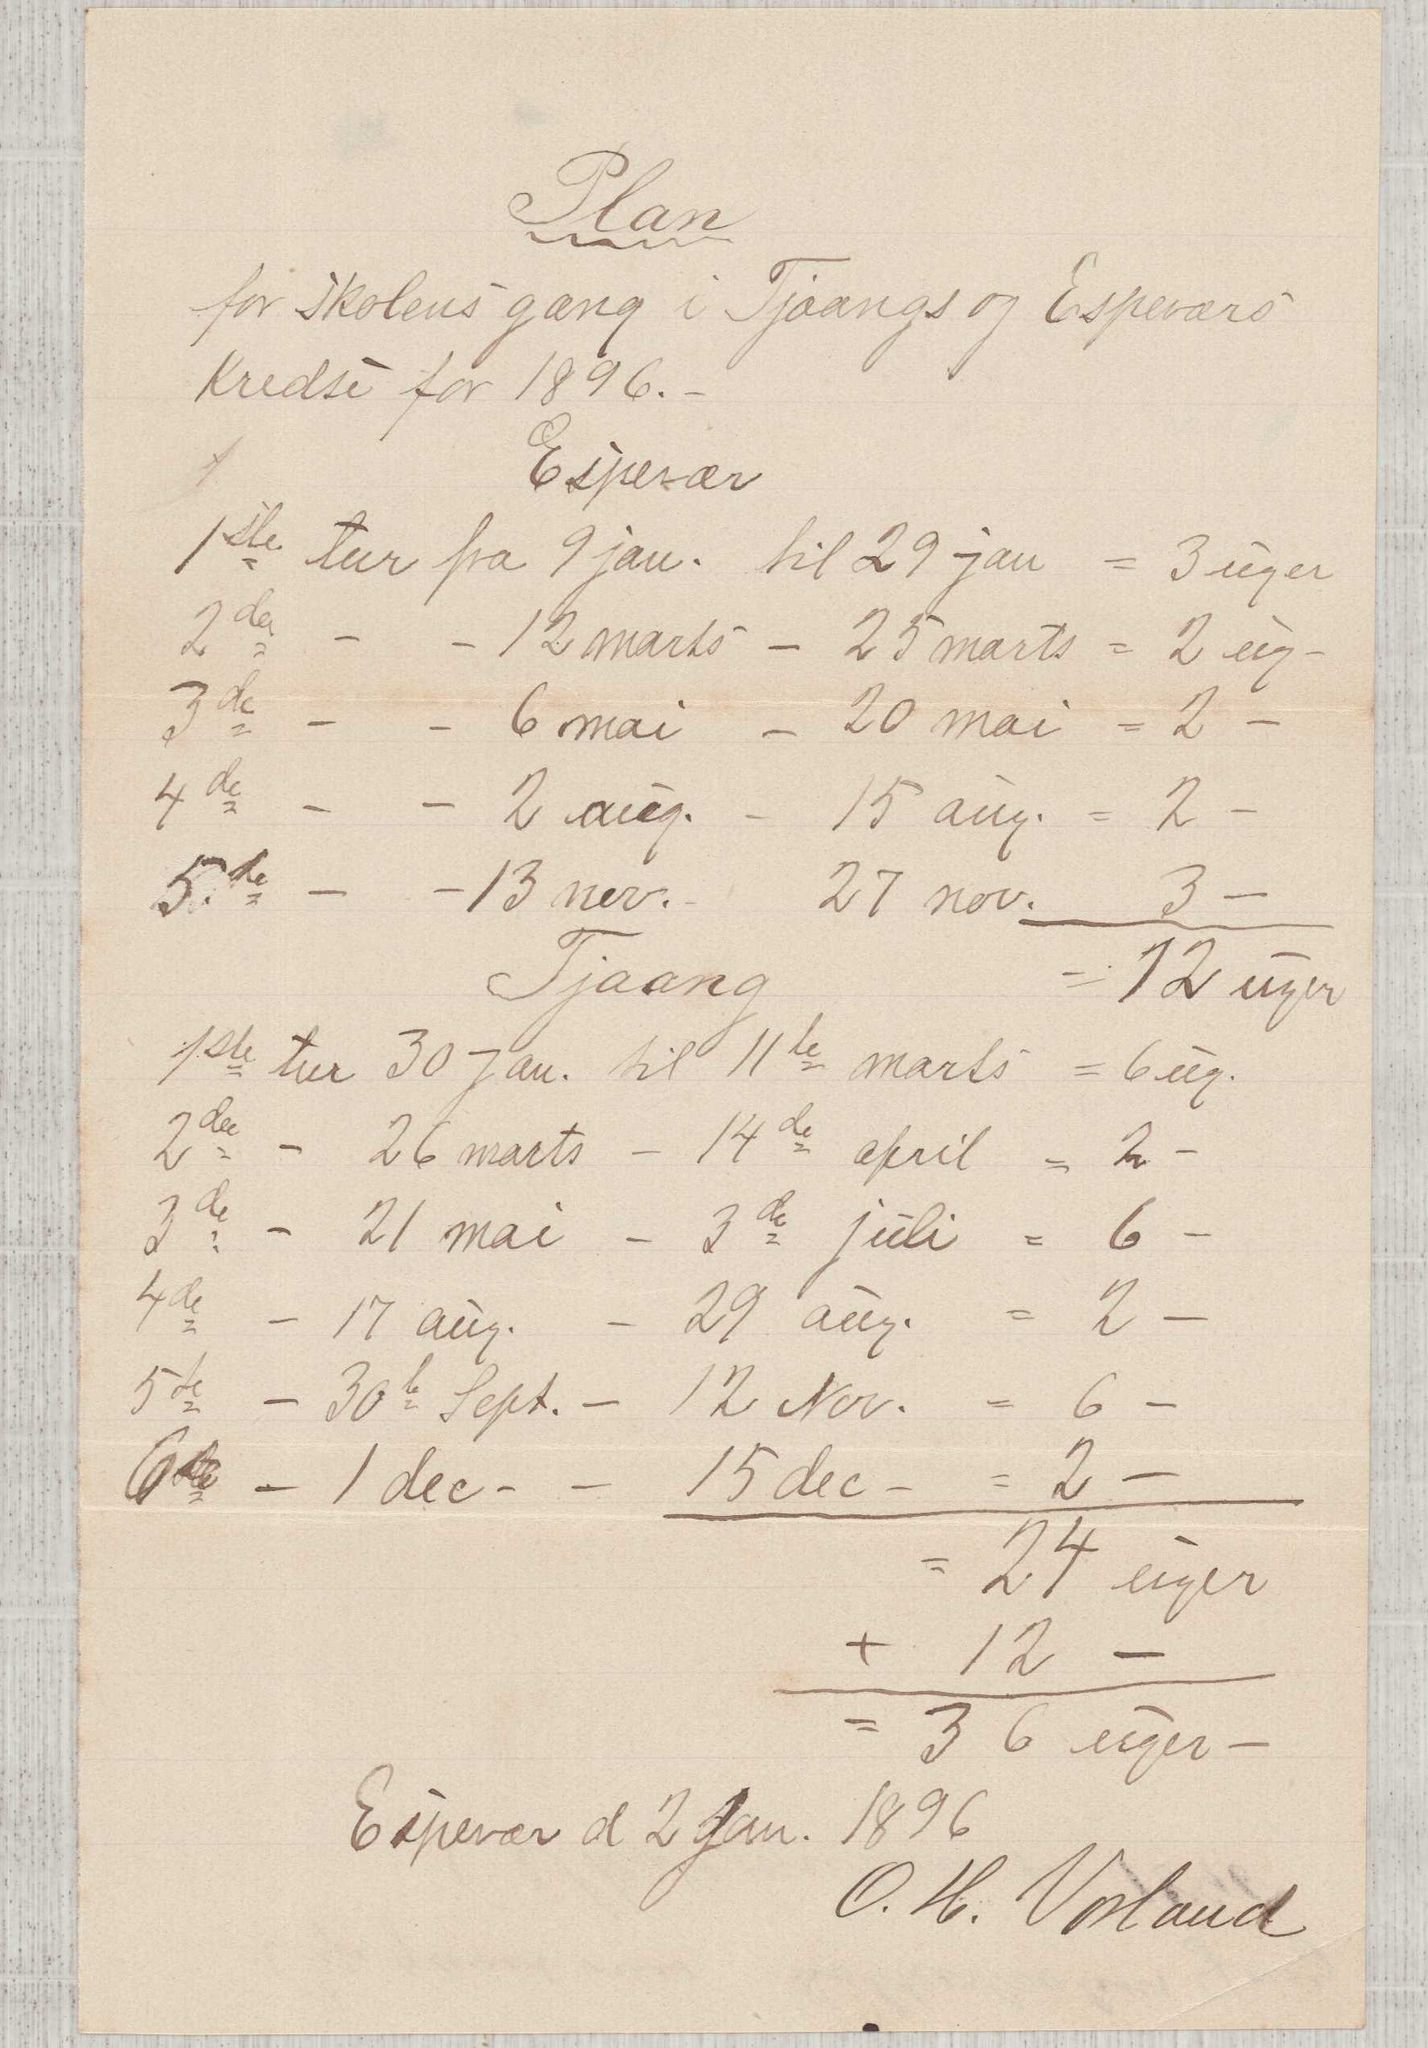 Plan
for skolens gang i Tjoangs og Espeværs
Kredse for 1896. -
Espevær
1ste tur fra 9 jan. til 29 jan = 3 uger
2den - - 12 marts - 25 marts = 2 ug -
3de - - 6 mai - 20 mai = 2 -
4de - - 2 aug. - 15 aug. = 2 -
5.te - - 13 nov. - 27 nov. 3 -
= 12 uger
Tjoang
1ste tur 30 jan. til 11te marts = 6 ug.
2den - 26 marts - 14de april = 2 -
3de - 21 mai - 3de juli = 6 -
4de - 17 aug. - 29 aug. = 2 -
5te - 30te Sept. - 12 Nov. = 6 -
6te - 1 dec - - 15 dec - = 2 -
= 24 uger
+ 12 -
= 36 uger -
Espevær d 2 Jan. 1896
O. H. Vorland